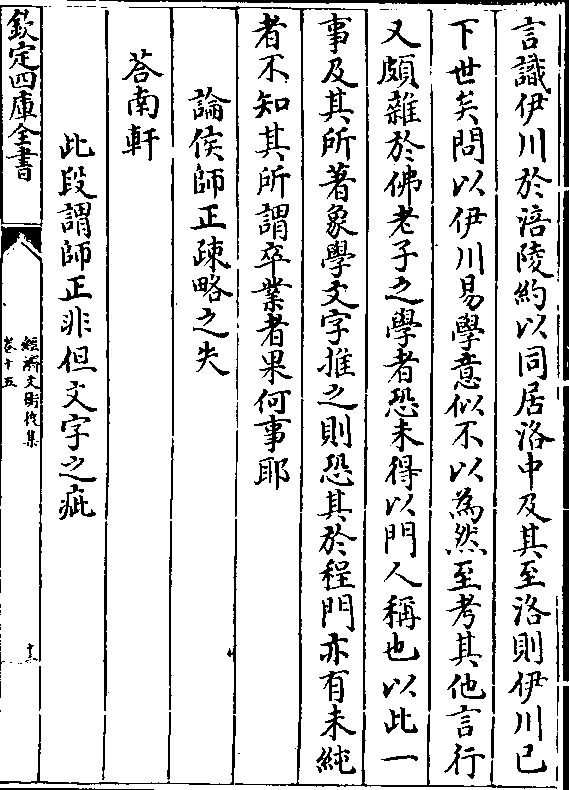 言識伊川於涪陵約以同居洛中及其至洛則伊川已
下世矣問以伊川易學意似不以為然至考其他言行
又頗雜於佛老子之學者恐未得以門人稱也以此一
事及其所著象學文字推之則恐其於程門亦有未純
者不知其所謂卒業者果何事耶
論侯師正疎略之失
荅南軒
此段謂師正非但文字之疵
欽定四庫全書
經濟文衡後集
卷十五